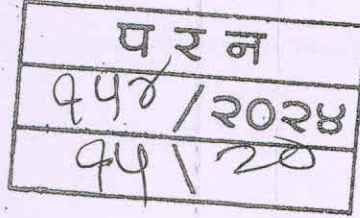 प र न
१५४/२०२४
१५ \ २०